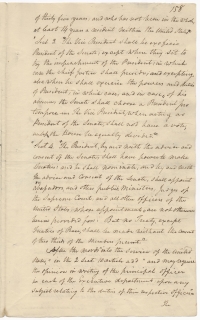 158
of thirty five years and who has not been in the whole,
at least 14 years a resident within the United States."
"Sect. 3. The Vice President shall be ex officio
President of the Senate, except when they sit to
try the impeachment of the President, in which
case the Chief Justice shall preside, and excepting
also when he shall exercise the powers and duties
of President, in which case, and in case of his
absence, the Senate shall chuse a President pro
tempore. The Vice President when acting as
President of the Senate shall not have a vote
unless the House be equally divided."
"Sect. 4. The President, by and with the advice and
consent of the Senate, shall have power to make
treaties; and he shall nominate and by and with
the advice and consent of the Senate, shall appoint
Ambassadors, and other public Ministers, Judges of
the Supreme Court, and all other officers of the
United States, whose appointments are not otherwise
herein provided for. But no Treaty, except
treaties of Peace, shall be made without the consent
of two thirds of the Members present."
After the words into the service of the United
States in the 2 sect. 10 article add "and may require
the opinion in writing of the principal officer
in each of the executive departments, upon any
subject relating to the duties of their respective offices"
The